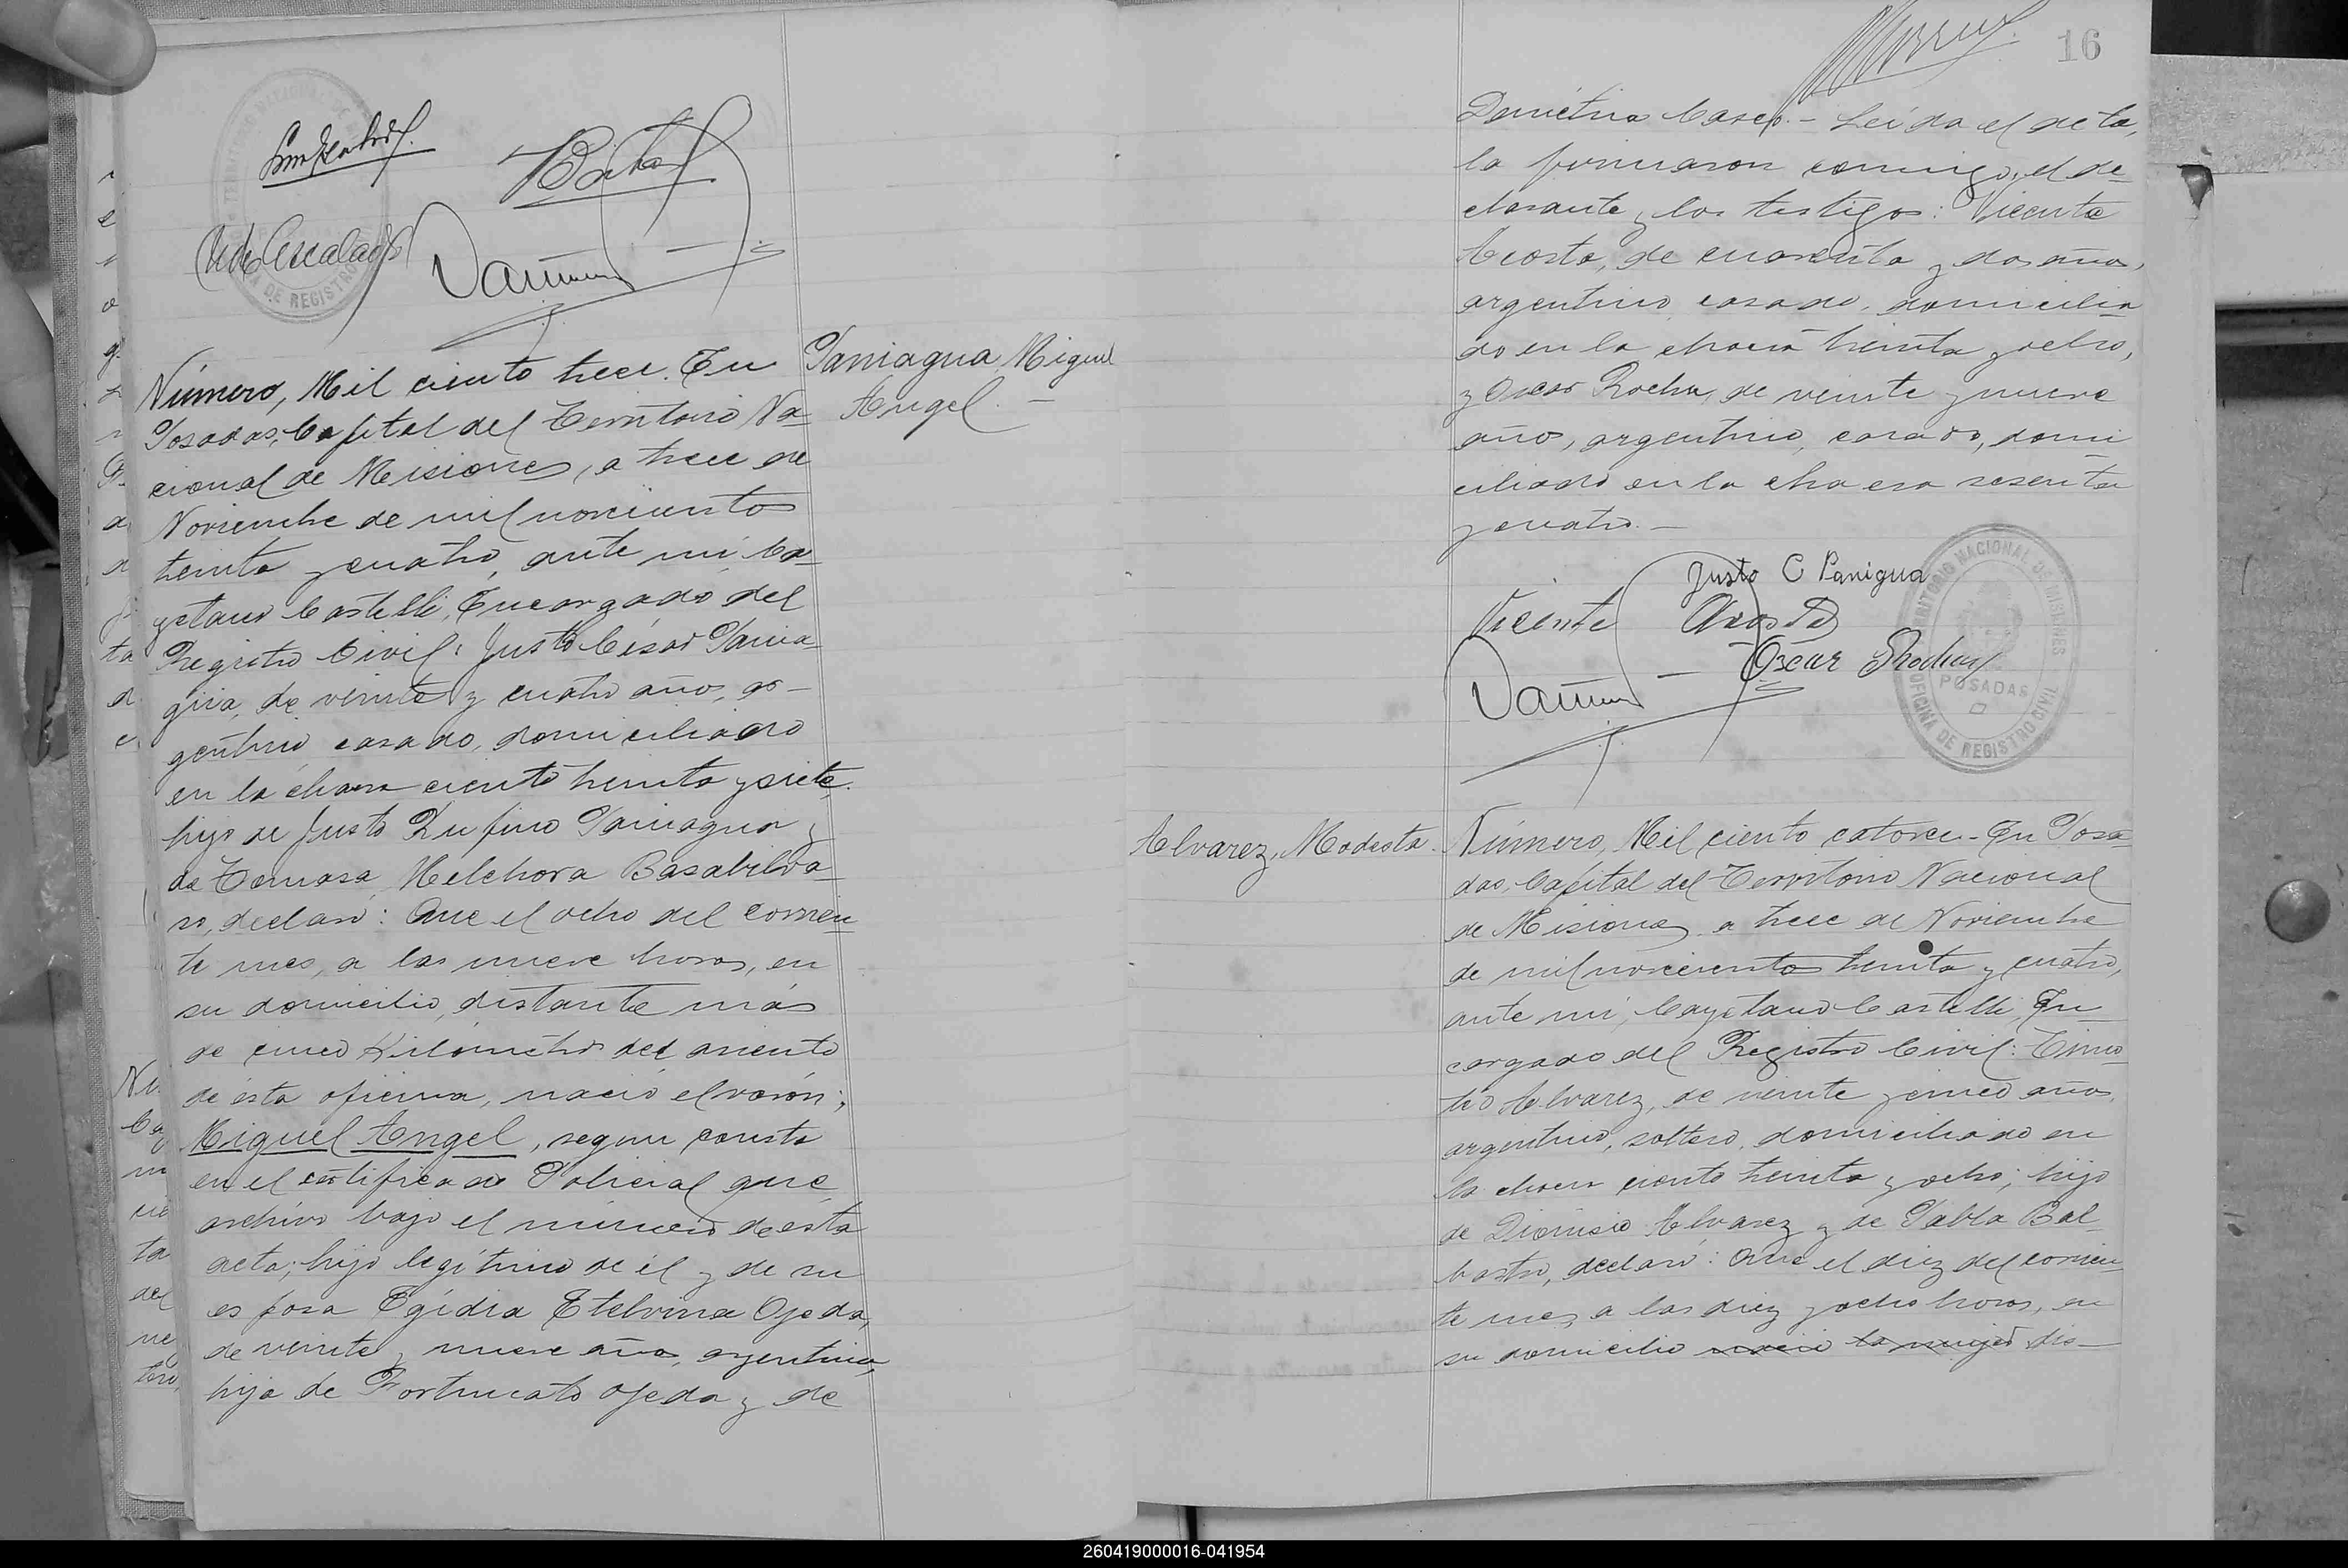 Número, Mil ciento trece. En
Posadas, Capital del Territorio Na-
cional de Misiones, a trece de
Noviembre de mil novecientos
treinta y cuatro, ante mí, Ca-
yetano Castelli, Encargado del
Registro Civil: Justo César Pania-
gua, de veinte y cuatro años, ar-
gentino, casado, domiciliado
en la chacra ciento treinta y siete,
hijo de Justo Rufino Paniagua y
de Tomasa Melchora Basabilva-
so, declaró: Que el ocho del corrien-
te mes, a las nueve horas, en
su domicilio, distante más
de cinco Kilómetros del asiento
de ésta oficina, nació el varón;
Miguel Angel, segun consta
en el certificado Policial que
archivo bajo el número de esta
acta; hijo legítimo de él y de su
esposa Egídia Etelvina Ojeda,
de veinte y nueve años, argentina,
hija de Fortunato Ojeda y de
Paniagua, Miguel
Angel. -
16
Demétria .- Leída el acta,
la firmaron conmigo, el de-
clarante y los testigos: Vicente
Acosta, de cuarenta y dos años,
argentino, casado, domicilia-
do en la chacra treinta y ocho,
y Oscar de veinte y nueve
años, argentino, casado, domi-
ciliado en la chacra sesenta
y cuatro.-
Justo C Panigua
Vicente Acosta
Oscar
TERRITORIO NACIONAL DE MISIONES
POSADAS
OFICINA DE REGISTRO CIVIL
Alvarez, Modesta.
Número, Mil ciento catorce.- En Posa-
das, Capital del Territorio Nacional
de Misiones, a trece de Noviembre
de mil novecientos treinta y cuatro,
ante mí, Cayetano Castelli, En-
cargado del Registro Civil: Timo-
téo Alvarez, de veinte y cinco años,
argentino, soltero, domiciliado en
la chacra ciento treinta y ocho; hijo
de Dionisio Alvarez y de Pabla Bal-
bastro, declaró: Que el diez del corrien-
te mes, a las diez y ocho horas, en
su domicilio nació la mujer dis-
260419000016-041954